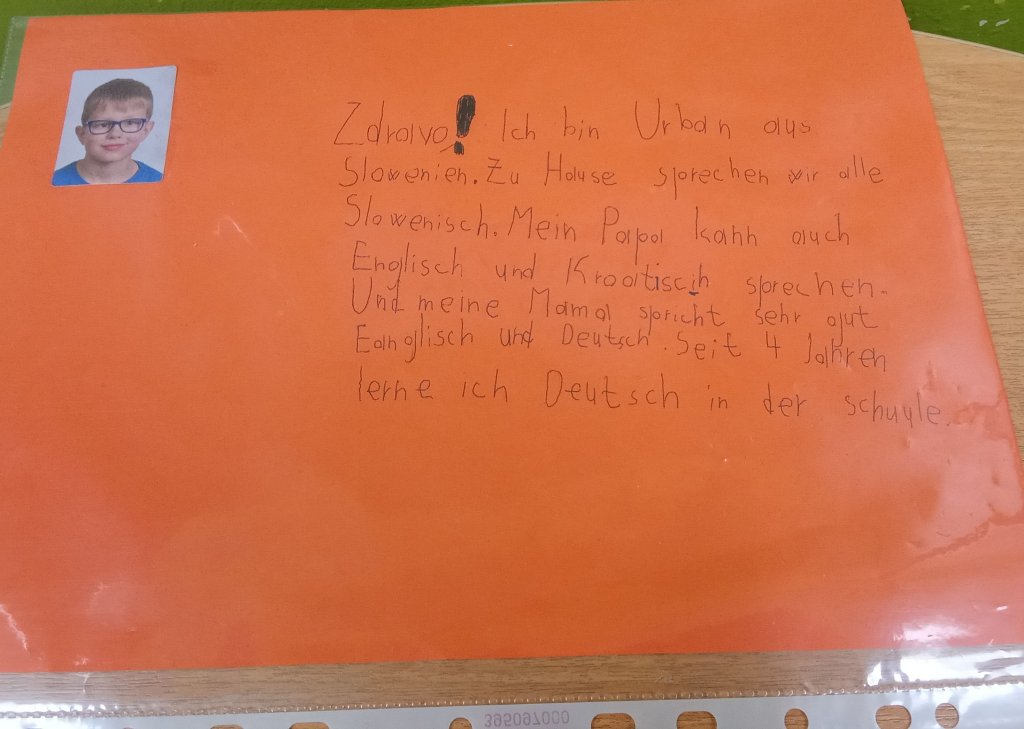 Zdravo! Ich bin Urban aus
Slowenien. Zu Hause sprechen wir alle
Slowenisch. Mein Papa kann auch
Englisch und Kroatisch sprechen.
Und meine Mama spricht sehr gut
Eanglisch und Deutsch. Seit 4 Jahren
lerne ich Deutsch in der schuule.
395097000